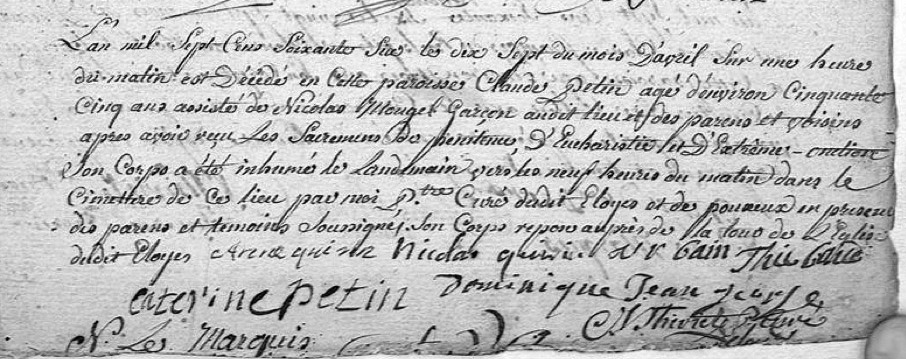 L'an mil Sept Cens Soixante Six le dix Sept du mois D'avril Sur une heure
du matin est Décédé en Cette paroisse Claude petin agé d'environ Cinquante
Cinq ans assisté de Nicolas Mougel Garçon audit lieu et des parens et voisins
apres avoir reçu Les Sacremens De penitence, D'Eucharistie et D'Extrême-onction
Son Corps a été inhumé le Landemain vers les neuf heures du matin dans le
Cimettre de Ce lieu par moi P.tre Curé dudit Eloyes et de pouxeux en presence
des parens et temoins Soussignés, Son Corps repose auprès de la tour de L'Eglise
dudit Eloyes Nicolas
caterine petin Dominique Jean
N. Le Marquis